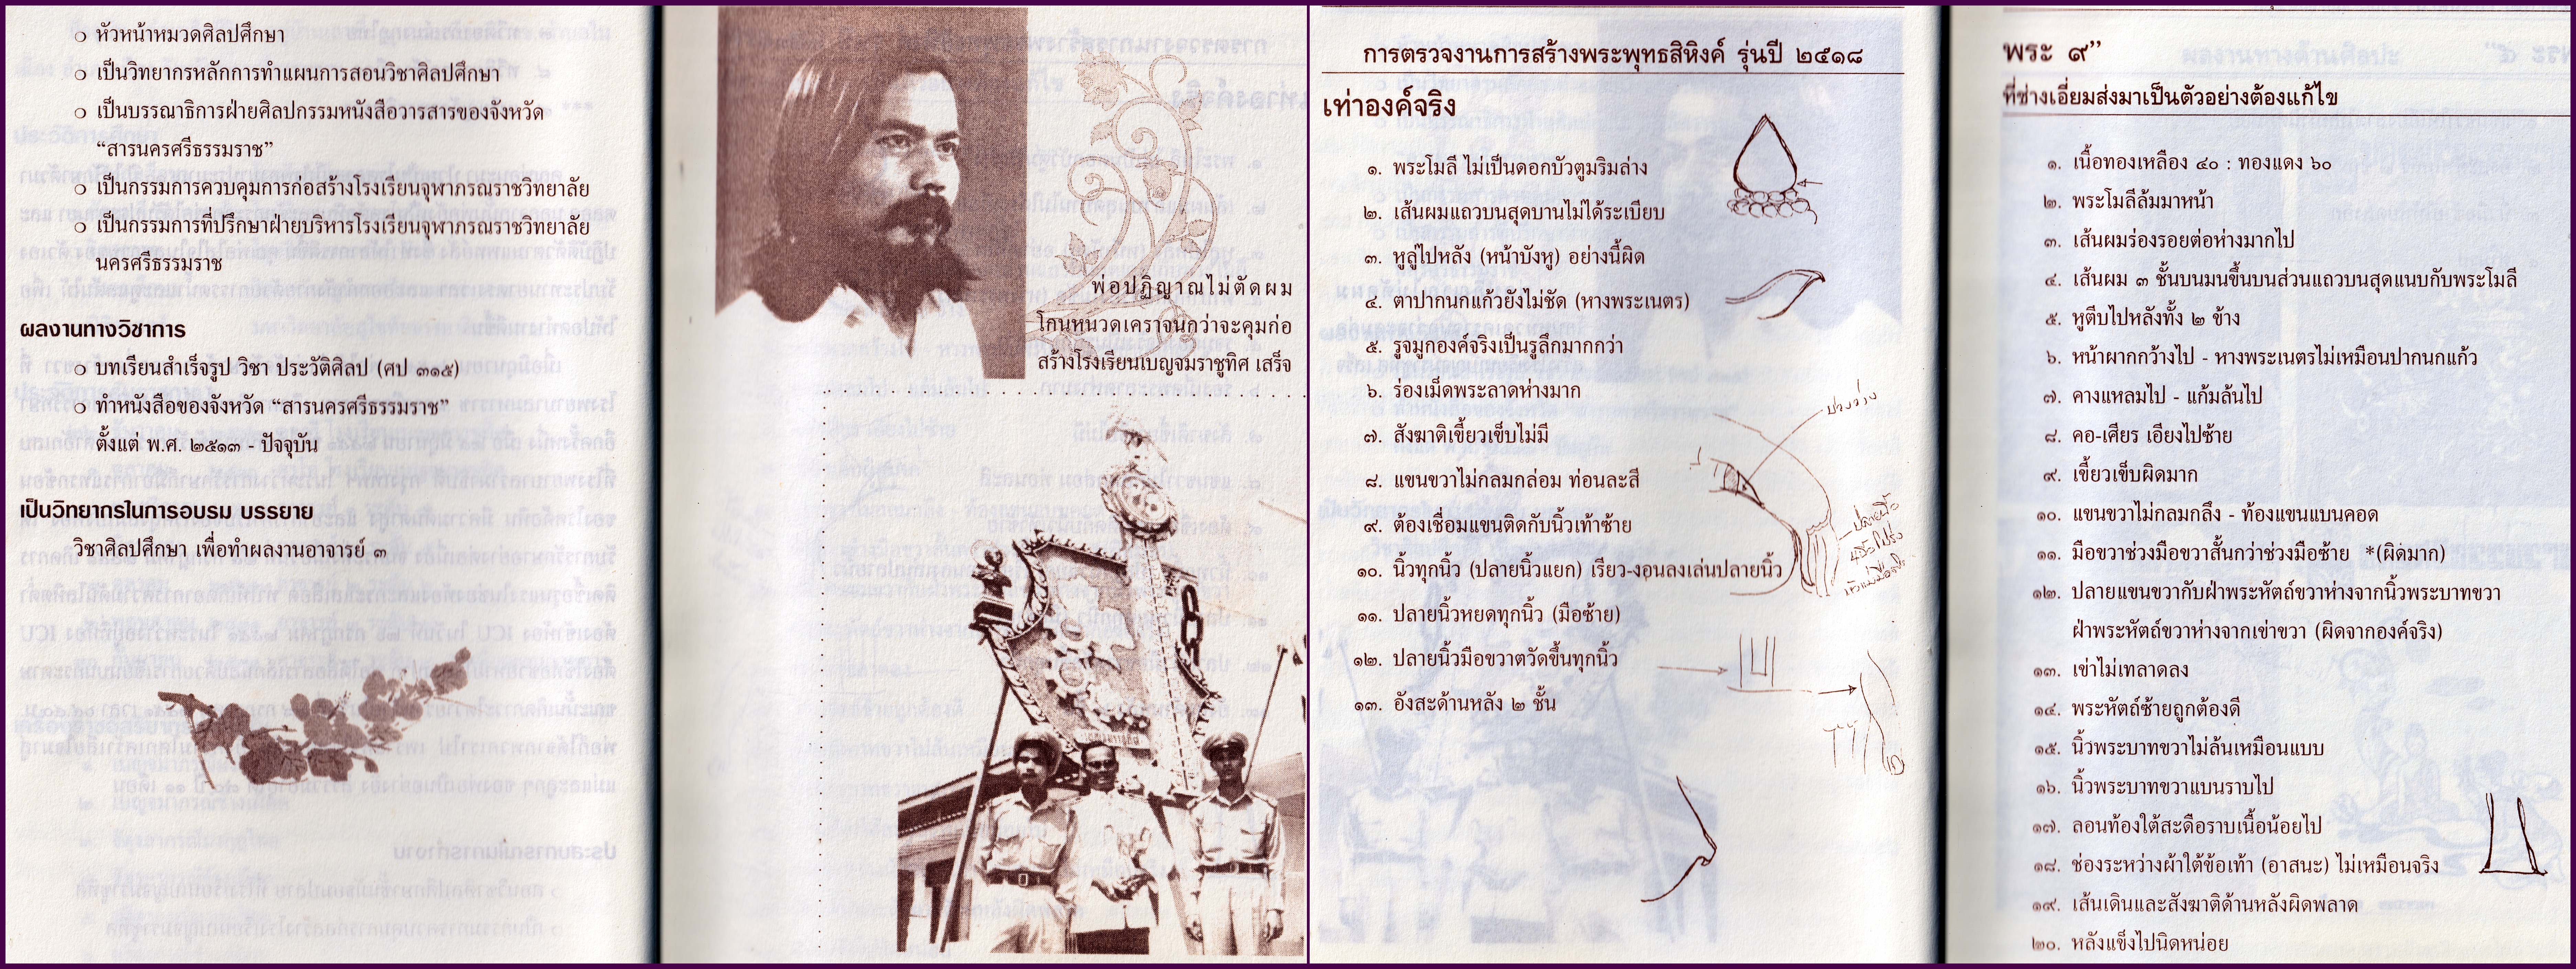 ○ หัวหน้าหมวดศิลปศึกษา
○ เป็นวิทยากรหลักการทำแผนการสอนวิชาศิลปศึกษา
○ เป็นบรรณาธิการฝ่ายศิลปกรรมหนังสือวารสารของจังหวัด
“สารนครศรีธรรมราช”
○ เป็นกรรมการควบคุมการก่อสร้างโรงเรียนจุฬาภรณราชวิทยาลัย
○ เป็นกรรมการที่ปรึกษาฝ่ายบริหารโรงเรียนจุฬาภรณราชวิทยาลัย
นครศรีธรรมราช
ผลงานทางวิชาการ
○ บทเรียนสำเร็จรูป วิชา ประวัติศิลป (ศป ๓๑๕)
○ ทำหนังสือของจังหวัด “สารนครศรีธรรมราช”
ตั้งแต่ พ.ศ. ๒๕๑๓ - ปัจจุบัน
เป็นวิทยากรในการอบรม บรรยาย
วิชาศิลปศึกษา เพื่อทำผลงานอาจารย์ ๓
พ่อปฏิญาณไม่ตัดผม
โกนหนวดเคราจนกว่าจะคุมก่อ
สร้างโรงเรียนเบญจมราชูทิศ เสร็จ
การตรวจงานการสร้างพระพุทธสิหิงค์ รุ่นปี ๒๕๑๘
เท่าองค์จริง
๑. พระโมลี ไม่เป็นดอกบัวตูมริมล่าง
๒. เส้นผมแถวบนสุดบานไม่ได้ระเบียบ
๓. หูลู่ไปหลัง (หน้าบังหู) อย่างนี้ผิด
๔. ตาปากนกแก้วยังไม่ชัด (หางพระเนตร)
๕. รูจมูกองค์จริงเป็นรูลึกมากกว่า
๖. ร่องเม็ดพระลาดห่างมาก
๗. สังฆาติเขี้ยวเข็บไม่มี
๘. แขนขวาไม่กลมกล่อม ท่อนละสี
๙. ต้องเชื่อมแขนติดกับนิ้วเท้าซ้าย
๑๐. นิ้วทุกนิ้ว (ปลายนิ้วแยก) เรียว-งอนลงเล่นปลายนิ้ว
๑๑. ปลายนิ้วหยดทุกนิ้ว (มือซ้าย)
๑๒. ปลายนิ้วมือขวาตวัดขึ้นทุกนิ้ว
๑๓. อังสะด้านหลัง ๒ ชั้น
ปลายนิ้ว
พระ ๙”
ที่ช่างเอี่ยมส่งมาเป็นตัวอย่างต้องแก้ไข
๑. เนื้อทองเหลือง ๔๐ : ทองแดง ๖๐
๒. พระโมลีล้มมาหน้า
๓. เส้นผมร่องรอยต่อห่างมากไป
๔. เส้นผม ๓ ชั้นบนมนขึ้นบนส่วนแถวบนสุดแนบกับพระโมลี
๕. หูตีบไปหลังทั้ง ๒ ข้าง
๖. หน้าผากกว้างไป - หางพระเนตรไม่เหมือนปากนกแก้ว
๗. คางแหลมไป - แก้มล้นไป
๘. คอ-เศียร เอียงไปซ้าย
๙. เขี้ยวเข็บผิดมาก
๑๐. แขนขวาไม่กลมกลึง - ท้องแขนแบนคอด
๑๑. มือขวาช่วงมือขวาสั้นกว่าช่วงมือซ้าย *(ผิดมาก)
๑๒. ปลายแขนขวากับฝ่าพระหัตถ์ขวาห่างจากนิ้วพระบาทขวา
ฝ่าพระหัตถ์ขวาห่างจากเข่าขวา (ผิดจากองค์จริง)
๑๓. เข่าไม่เทลาดลง
๑๔. พระหัตถ์ซ้ายถูกต้องดี
๑๕. นิ้วพระบาทขวาไม่ล้นเหมือนแบบ
๑๖. นิ้วพระบาทขวาแบนราบไป
๑๗. ลอนท้องใต้สะดือราบเนื้อน้อยไป
๑๘. ช่องระหว่างผ้าใต้ข้อเท้า (อาสนะ) ไม่เหมือนจริง
๑๙. เส้นเดินและสังฆาติด้านหลังผิดพลาด
๒๐. หลังแข็งไปนิดหน่อย